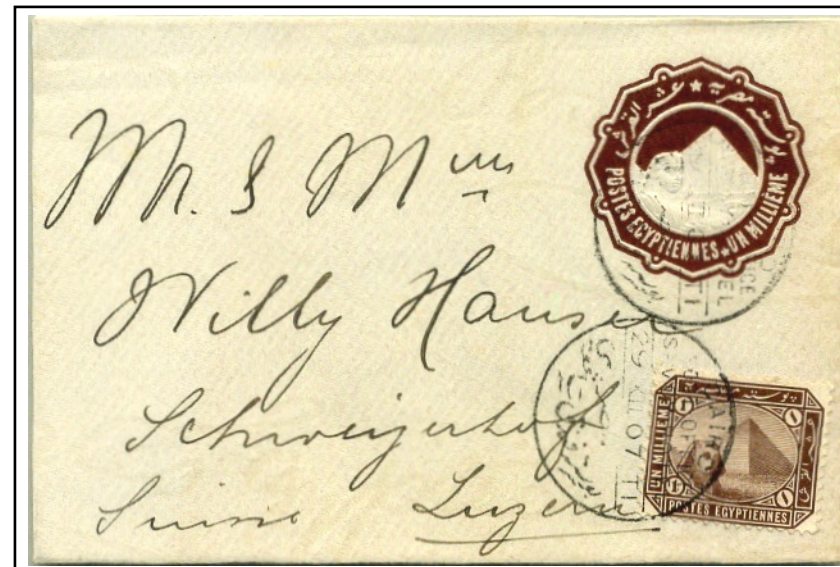 Mr. & Mme
Willy Hauser
Schweizerhof
Suisse Luzern
بوستة مصرية ★ عشر القرش
POSTES EGYPTIENNES UN MILLIÈME
29 XII 07 T1
CAIRO
UN MILLIEME
POSTES EGYPTIENNES